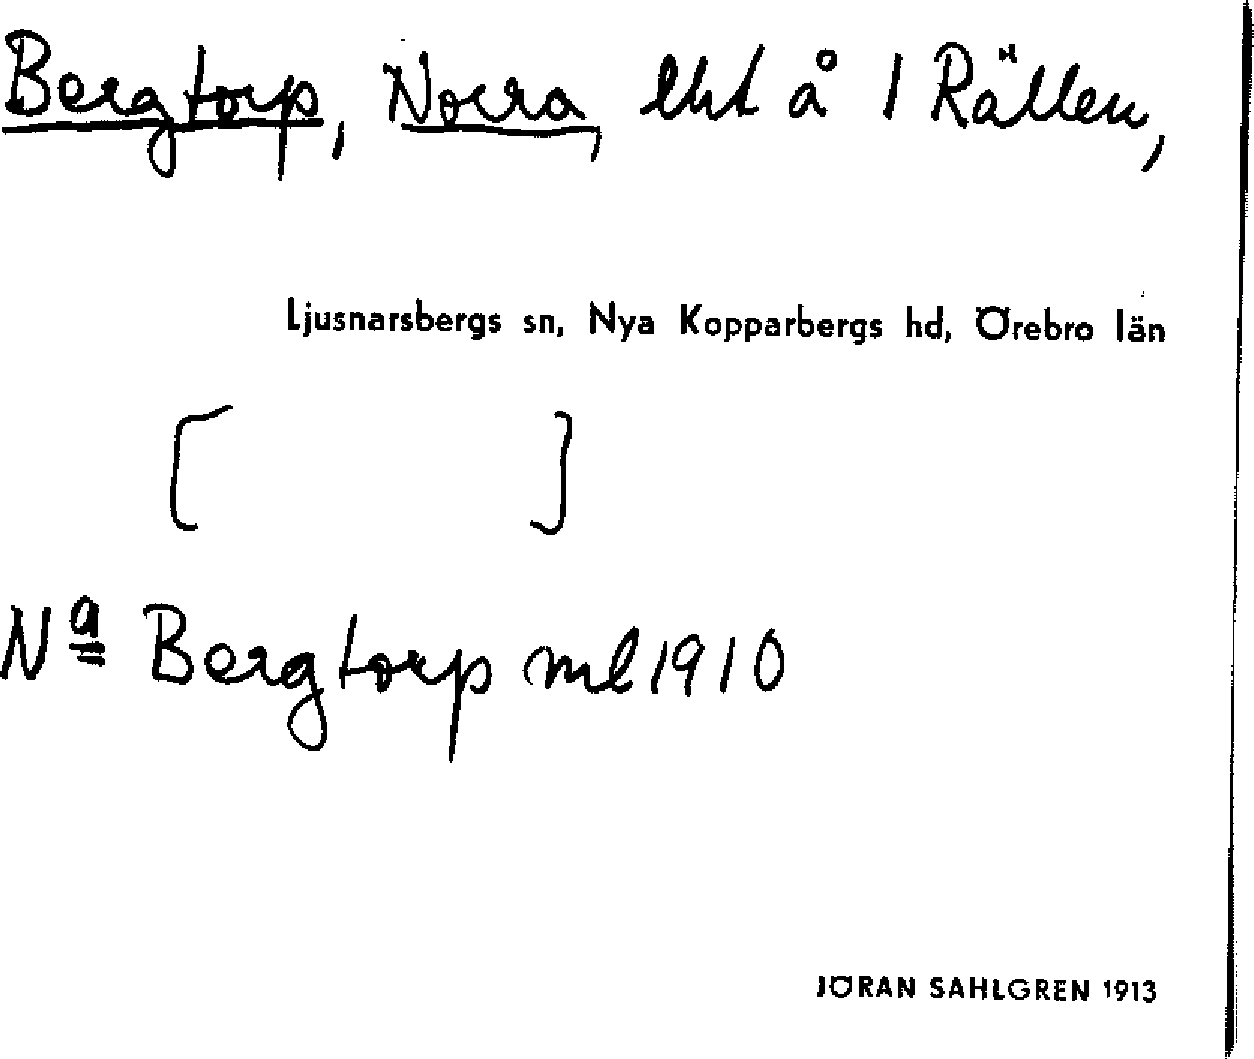 Bergtorp, Norra, lht å 1 Rällen,
Ljusnarsbergs sn, Nya Kopparbergs hd, Örebro län
[ ]
Na Bergtorp ml 1910
JÖRAN SAHLGREN 1913